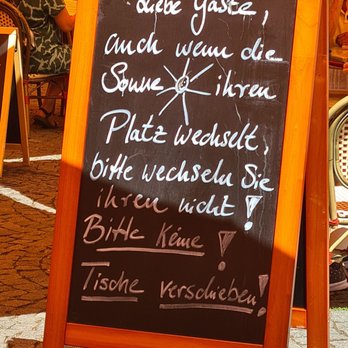 Liebe Gäste,
auch wenn die
Sonne ihren
Platz wechselt,
bitte wechseln Sie
ihren nicht!
Bitte Keine!
Tische verschieben!